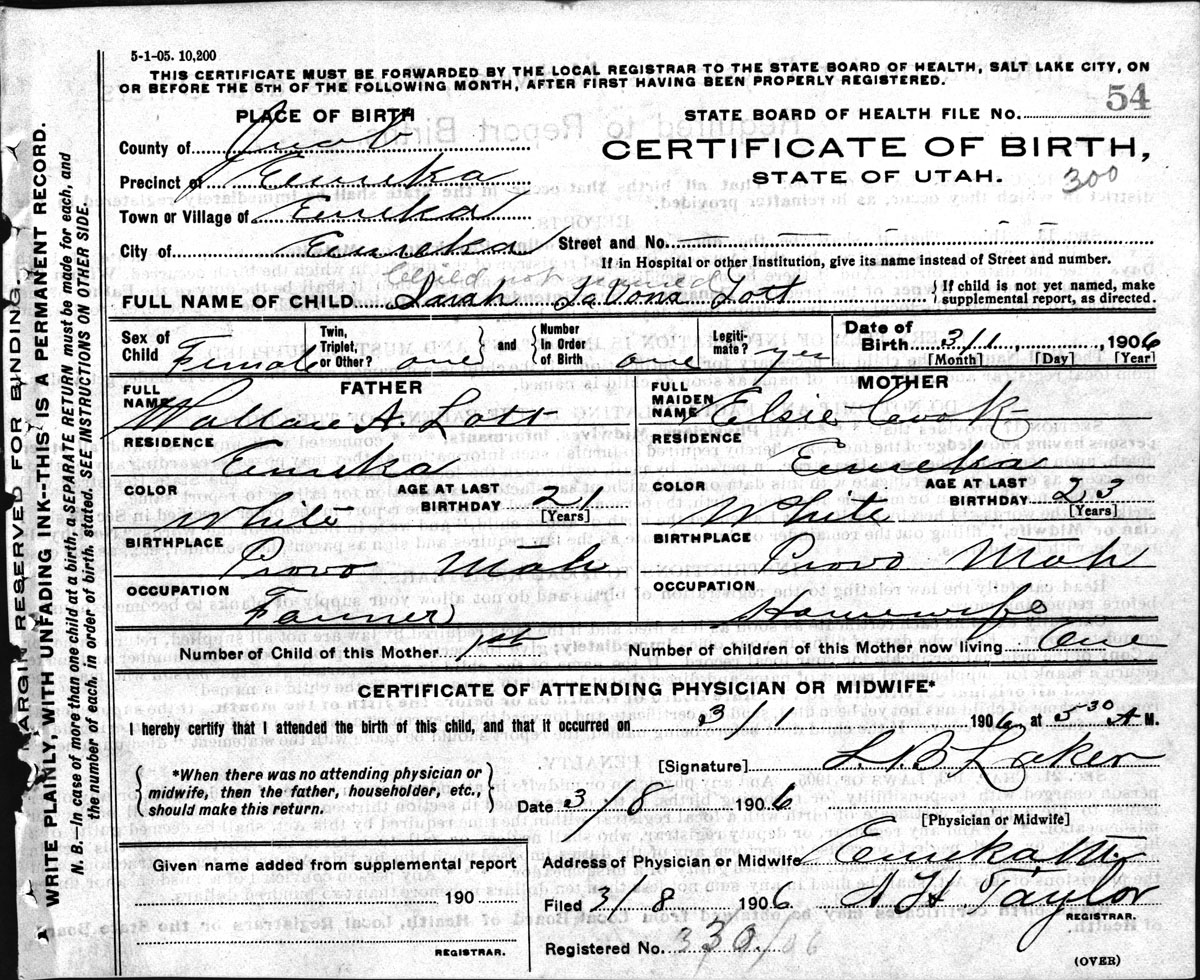 5-1-05. 10,200
THIS CERTIFICATE MUST BE FORWARDED BY THE LOCAL REGISTRAR TO THE STATE BOARD OF HEALTH, SALT LAKE CITY, ON
OR BEFORE THE 5TH OF THE FOLLOWING MONTH, AFTER FIRST HAVING BEEN PROPERLY REGISTERED.
54
PLACE OF BIRTH
STATE BOARD OF HEALTH FILE NO.
County of Juab
CERTIFICATE OF BIRTH,
STATE OF UTAH.
300
Precinct of Eureka
Town or Village of Eureka
City of Eureka Street and No.
If in Hospital or other Institution, give its name instead of Street and number.
Child not named
FULL NAME OF CHILD Sarah LaVona Lott { If child is not yet named, make supplemental report, as directed.
Sex of Child Female Twin, Triplet, or Other? one } and { Number In Order of Birth one Legiti-mate? yes Date of Birth 3/1, 1906
[Month] [Day] [Year]
FATHER
MOTHER
FULL NAME Wallace A. Lott
FULL MAIDEN NAME Elsie Cook
RESIDENCE Eureka
RESIDENCE Eureka
COLOR White AGE AT LAST BIRTHDAY 21 [Years]
COLOR White AGE AT LAST BIRTHDAY 23 [Years]
BIRTHPLACE Provo Utah
BIRTHPLACE Provo Utah
OCCUPATION Farmer
OCCUPATION Housewife
Number of Child of this Mother 1st Number of children of this Mother now living One
CERTIFICATE OF ATTENDING PHYSICIAN OR MIDWIFE*
I hereby certify that I attended the birth of this child, and that it occurred on 3/1 1906, at 5-30 A M.
{ *When there was no attending physician or midwife, then the father, householder, etc., should make this return. }
[Signature] L.B. Laker
Date 3/8 1906
[Physician or Midwife]
Given name added from supplemental report
190
REGISTRAR.
Address of Physician or Midwife Eureka Ut.
Filed 3/8 1906 A H Taylor
REGISTRAR.
Registered No. 330/06
(OVER)
MARGIN RESERVED FOR BINDING.
WRITE PLAINLY, WITH UNFADING INK--THIS IS A PERMANENT RECORD.
N. B.--In case of more than one child at a birth, a SEPARATE RETURN must be made for each, and
the number of each, in order of birth, stated. SEE INSTRUCTIONS ON OTHER SIDE.